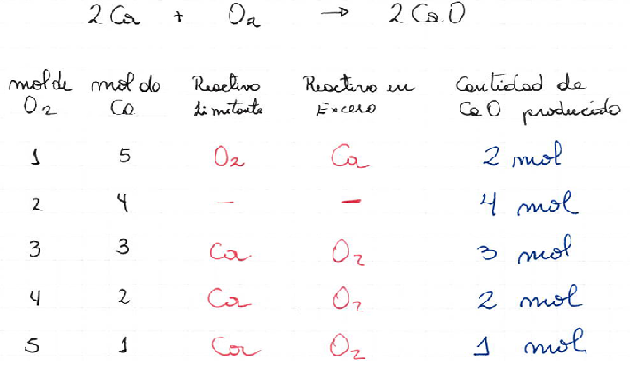 2 Ca + O2 → 2 CaO
mol de O2 mol de Ca Reactivo Limitante Reactivo en Exceso Cantidad de CaO producido
1 5 O2 Ca 2 mol
2 4 — — 4 mol
3 3 Ca O2 3 mol
4 2 Ca O2 2 mol
5 1 Ca O2 1 mol